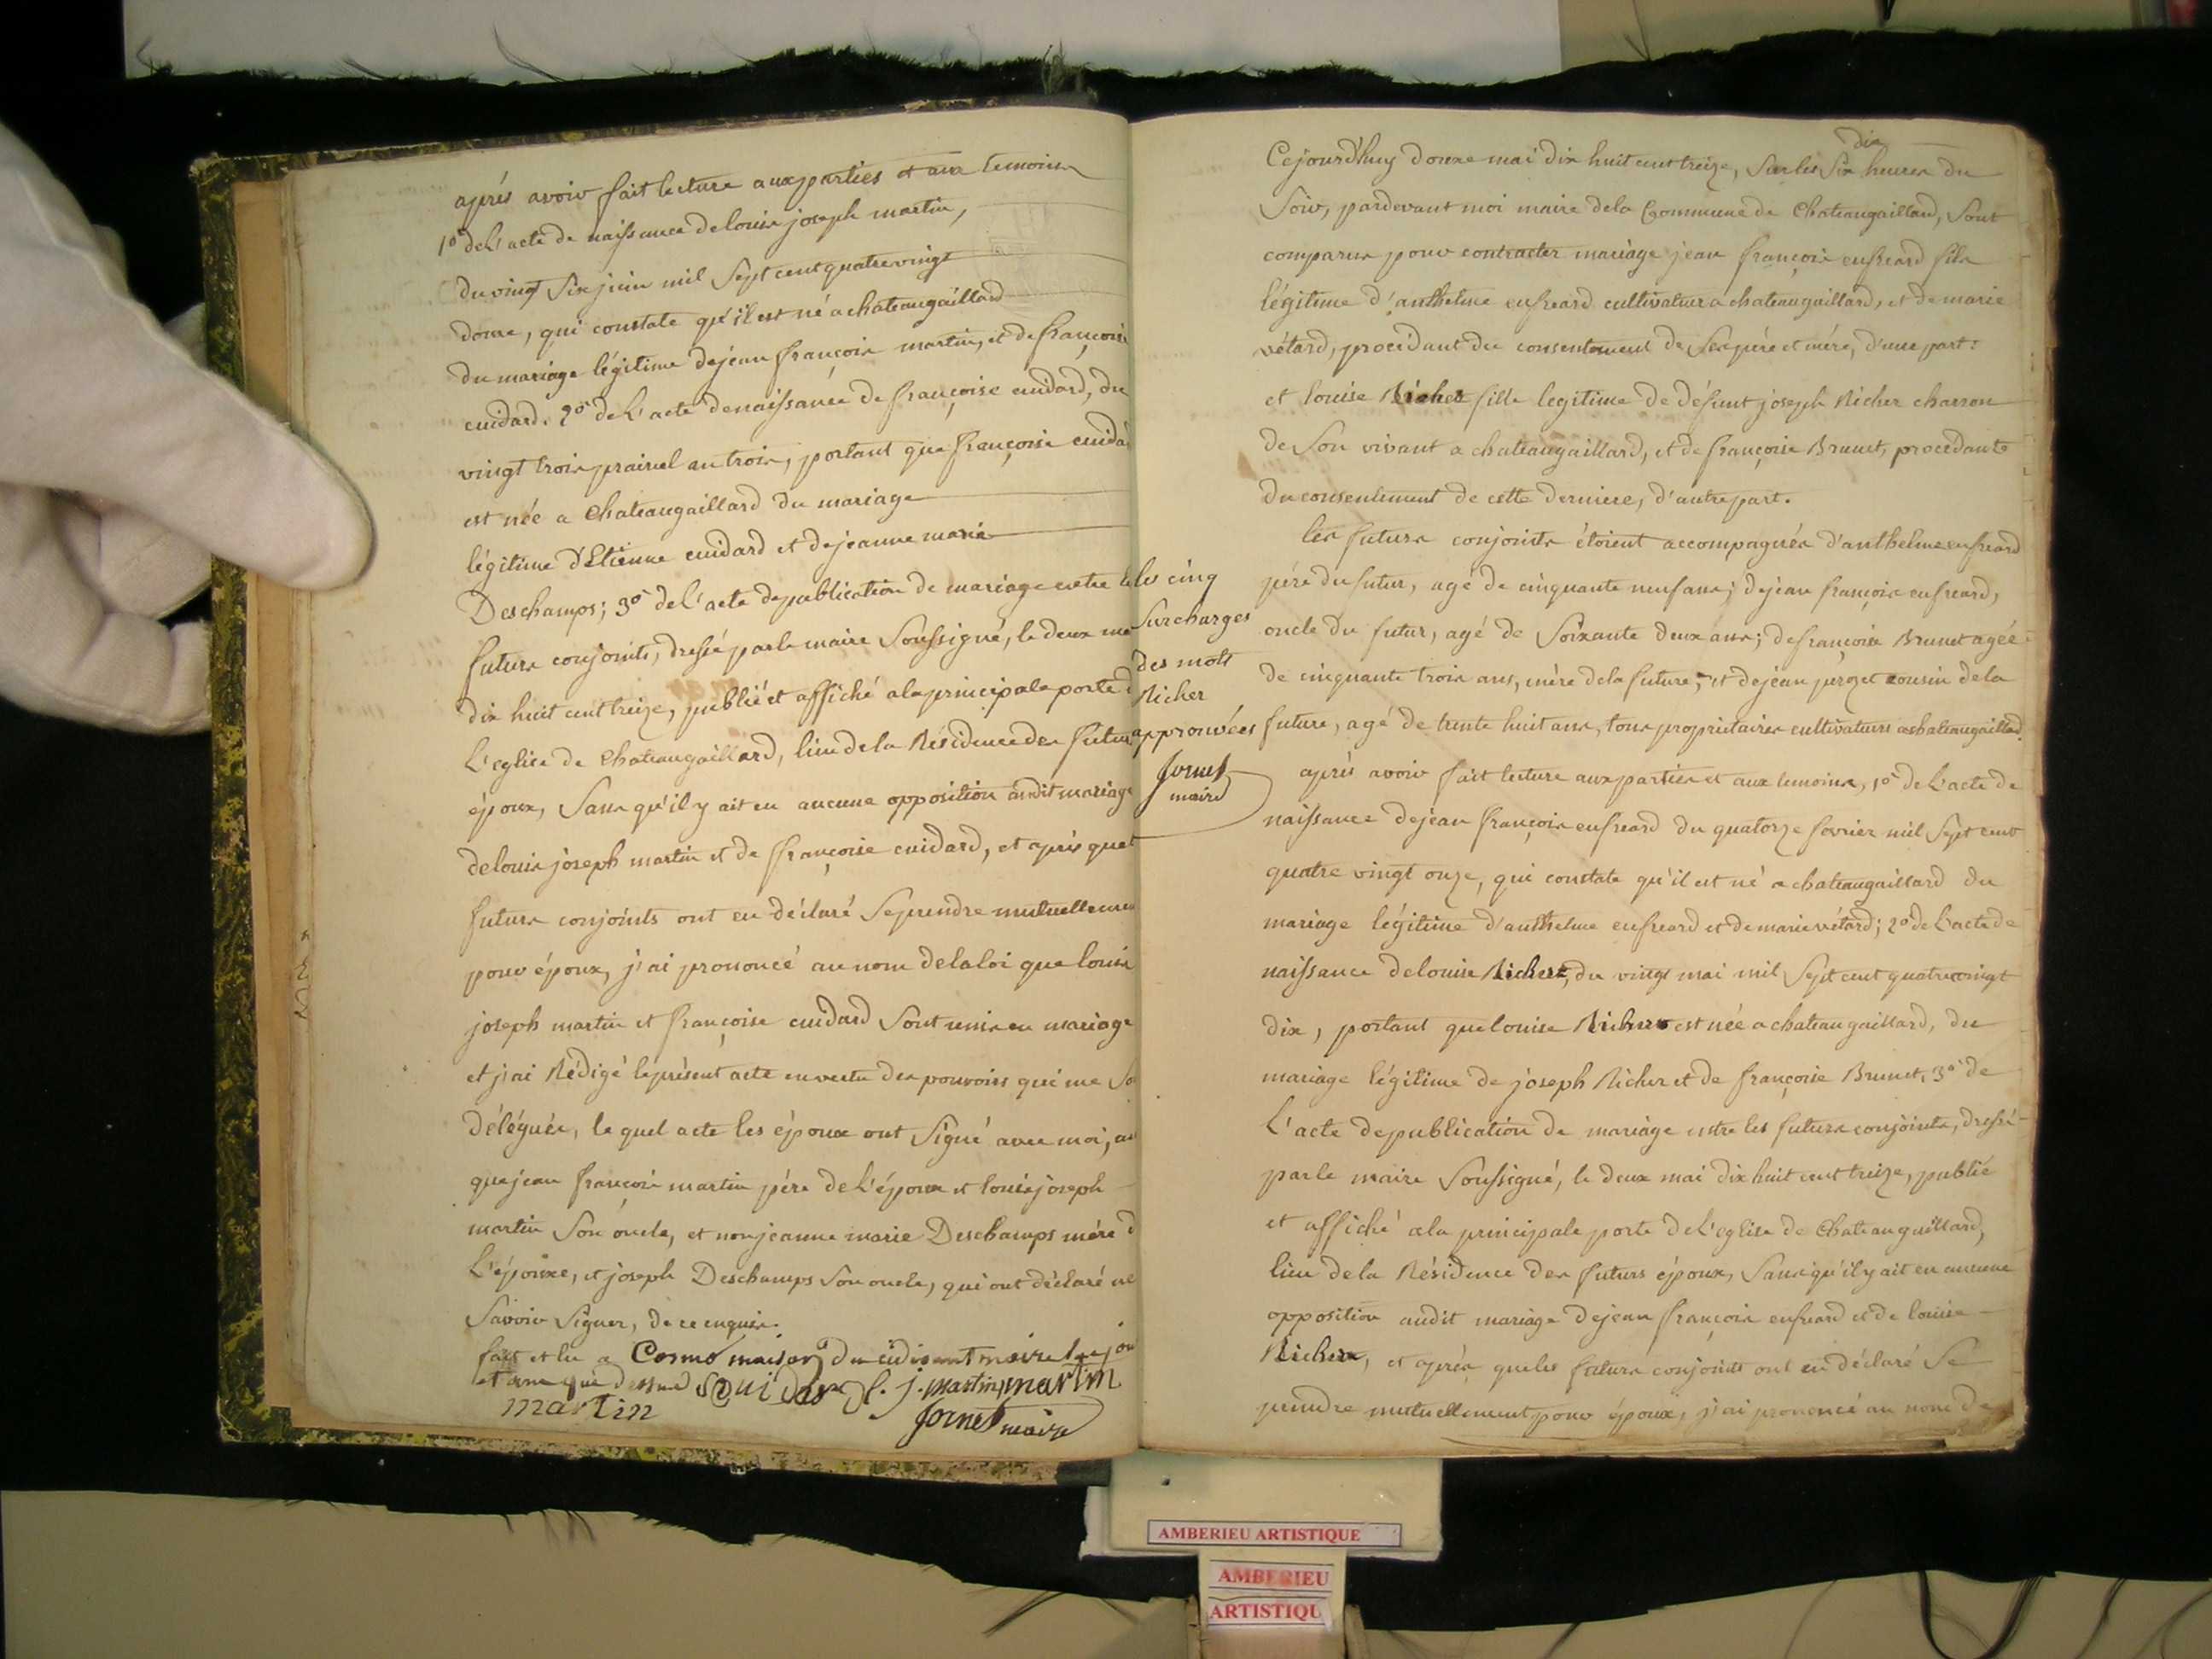 après avoir fait lecture aux parties et aux temoins
1º de l'acte de naissance de louis joseph martin,
du vingt Six juin mil Sept cent quatre vingt
douze, qui constate qu'il est né a chateaugaillard
du mariage légitime de jean françois martin, et de françoise
cuidard. 2º de l'acte de naissance de françoise cuidard, du
vingt trois prairial an trois, portant que françoise cuidard
est née a Chateaugaillard du mariage
légitime d'Etienne cuidard et de jeanne marie
Deschamps; 3º de l'acte de publication de mariage entre les
futurs conjoints, dressé par le maire Soussigné, le deux mai
dix huit cent treize, publié et affiché a la principale porte de
L'eglise de Chateaugaillard, lieu de la Résidence des futurs
époux, Sans qu'il y ait eu aucune opposition audit mariage
de louis joseph martin et de françoise cuidard, et après que les
futurs conjoints ont eu déclaré Se prendre mutuellement
pour époux, j'ai prononcé au nom de la loi que louis
joseph martin et françoise cuidard Sont unis en mariage
et j'ai Rédigé le présent acte en vertu des pouvoirs qui me Sont
délégués, le quel acte les époux ont Signé avec moi, ainsi
que jean françois martin père de l'époux et louis joseph
martin Son oncle, et non jeanne marie Deschamps mère de
L'épouse, et joseph Deschamps Son oncle, qui ont déclaré ne
Savoir Signer, de ce enquis.
fait et lu a maison du maire le jour
et an que dessus l. j. martin martin
martin
fornet maire
les cinq
Surcharges
des mots
Richer
approuvées
fornet
maire
dix
Cejourd'huy douze mai dix huit cent treize, Sur les Six heures du
Soir, pardevant moi maire de la Commune de Chateaugaillard, Sont
comparus pour contracter mariage jean françois enfreard fils
légitime d'anthelme enfreard cultivateur a chateaugaillard, et de marie
vétard, procédant du consentement de Ses père et mère, d'une part:
et louise Richer fille legitime de défunt joseph Richer charron
de Son vivant a chateaugaillard, et de françoise Brunet, procedante
du consentement de cette derniere, d'autre part.
les futurs conjoints étoient accompagnés d'anthelme enfreard
père du futur, agé de cinquante neuf ans; de jean françois enfreard,
oncle du futur, agé de Soixante deux ans; de françoise Brunet agée
de cinquante trois ans, mère de la future; et de jean cousin de la
future, agé de trente huit ans, tous propriétaires cultivateurs a chateaugaillard.
après avoir fait lecture aux parties et aux temoins, 1º de l'acte de
naissance de jean françois enfreard du quatorze fevrier mil Sept cent
quatre vingt onze, qui constate qu'il est né a chateaugaillard du
mariage légitime d'anthelme enfreard et de marie vétard; 2º de l'acte de
naissance de louise Richer, du vingt mai mil Sept cent quatre vingt
dix, portant que louise Richer est née a chateaugaillard, du
mariage légitime de joseph Richer et de françoise Brunet, 3º de
L'acte de publication de mariage entre les futurs conjoints, dressé
par le maire Soussigné, le deux mai dix huit cent treize, publié
et affiché a la principale porte de l'eglise de Chateaugaillard,
lieu de la Résidence des futurs époux, Sans qu'il y ait eu aucune
opposition audit mariage de jean françois enfreard et de louise
Richer, et après que les futurs conjoints ont eu déclaré Se
prendre mutuellement pour époux, j'ai prononcé au nom de
AMBERIEU ARTISTIQUE
AMBERIEU
ARTISTIQU